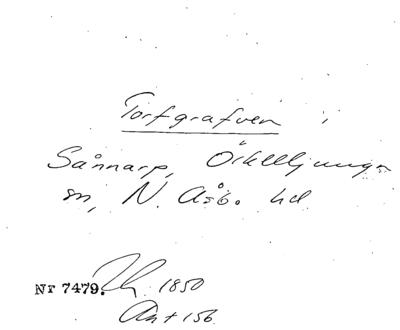 Torfgrafven i
Sånnarp, Örkelljunga
sn, N. Åsb. hd
Nr 7479. 1850
Ant 156